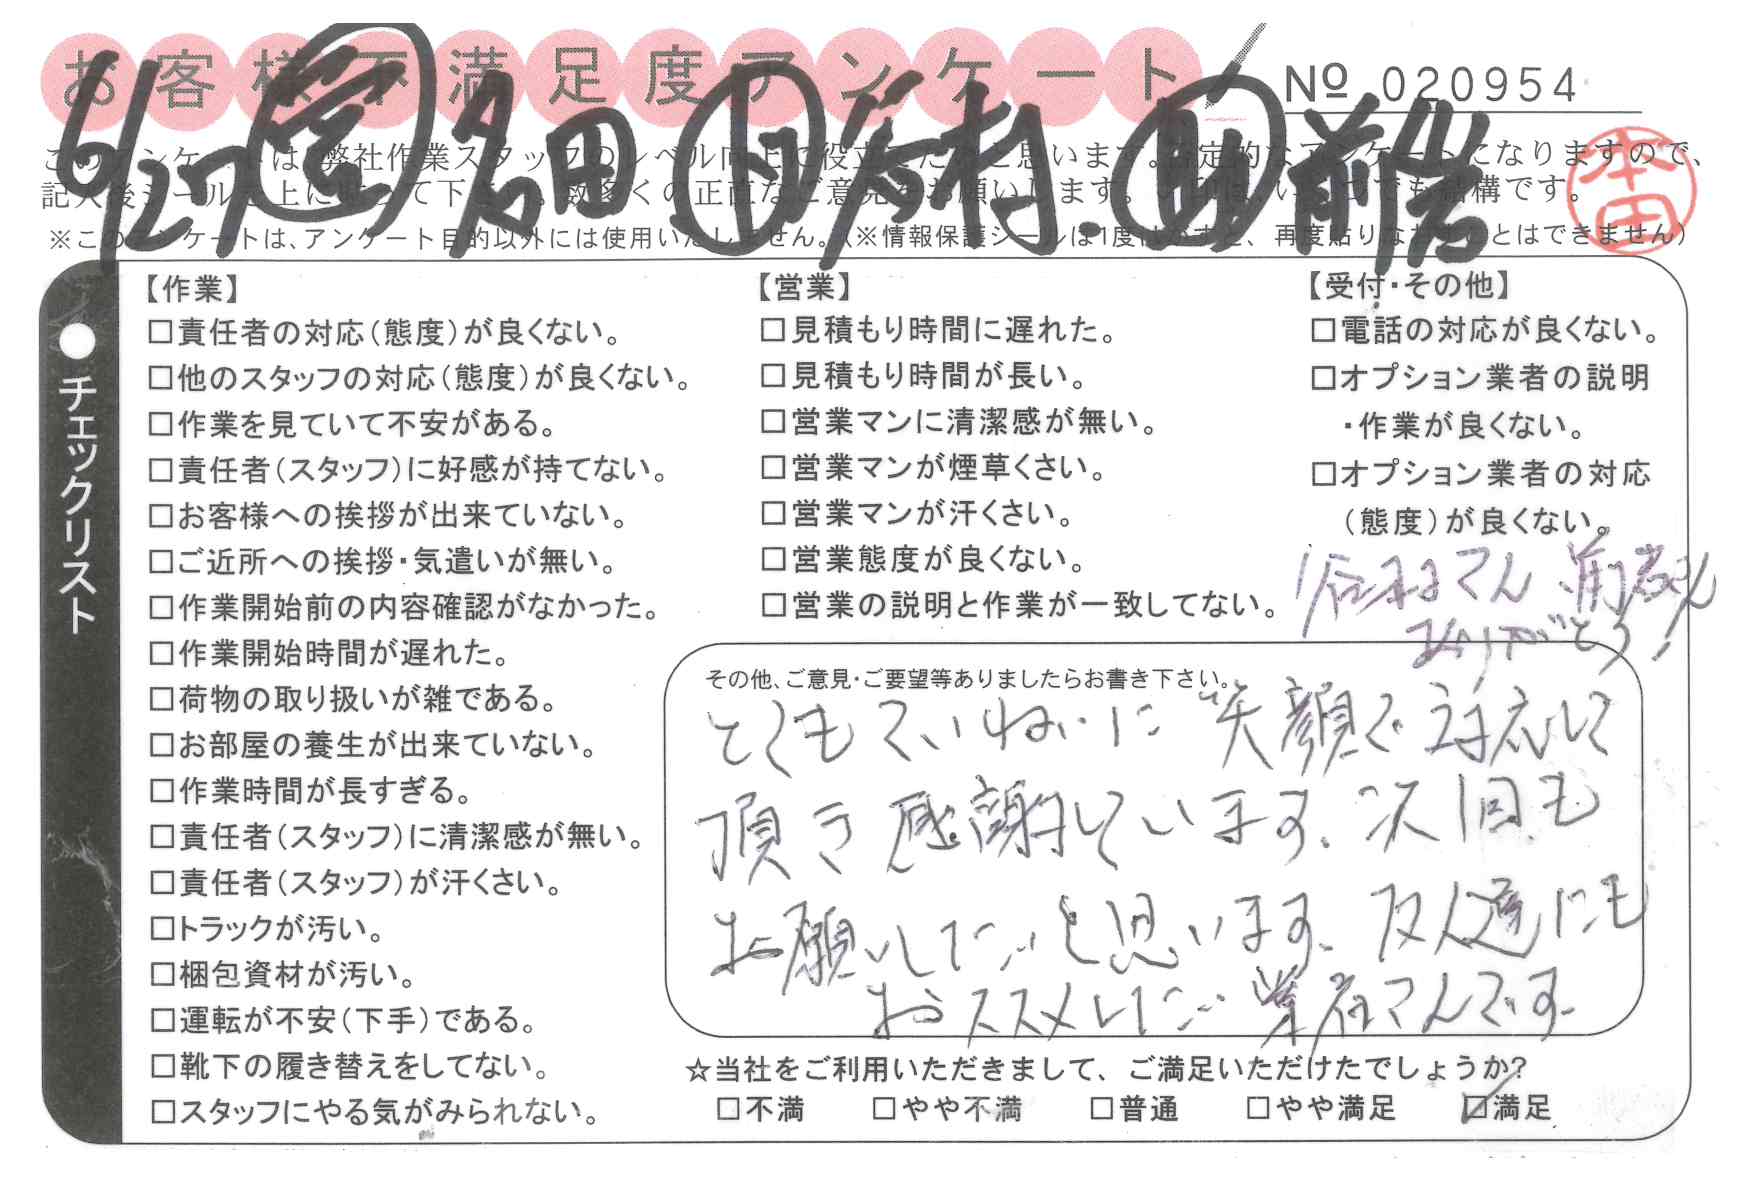 お客様不満足度アンケート
№ 020954
6/27 営 名田 作 谷村. 助 前岩
このアンケートは、弊社作業スタッフのレベル向上に役立てたいと思います。定的なアンケートになりますので、
記入後シールを上に貼って下さい。数多くの正直なご意見をお願いします。いくつでも結構です。
※このアンケートは、アンケート目的以外には使用いたしません。(※情報保護シールは1度はがすと、再度貼りなおすことはできません)
本田
●チェックリスト
【作業】
□責任者の対応(態度)が良くない。
□他のスタッフの対応(態度)が良くない。
□作業を見ていて不安がある。
□責任者(スタッフ)に好感が持てない。
□お客様への挨拶が出来ていない。
□ご近所への挨拶・気遣いが無い。
□作業開始前の内容確認がなかった。
□作業開始時間が遅れた。
□荷物の取り扱いが雑である。
□お部屋の養生が出来ていない。
□作業時間が長すぎる。
□責任者(スタッフ)に清潔感が無い。
□責任者(スタッフ)が汗くさい。
□トラックが汚い。
□梱包資材が汚い。
□運転が不安(下手)である。
□靴下の履き替えをしてない。
□スタッフにやる気がみられない。
【営業】
□見積もり時間に遅れた。
□見積もり時間が長い。
□営業マンに清潔感が無い。
□営業マンが煙草くさい。
□営業マンが汗くさい。
□営業態度が良くない。
□営業の説明と作業が一致してない。
【受付・その他】
□電話の対応が良くない。
□オプション業者の説明
・作業が良くない。
□オプション業者の対応
(態度)が良くない。
ありがとう!
その他、ご意見・ご要望等ありましたらお書き下さい。
とてもていねいに笑顔で対応して
頂き感謝しています、次回も
お願いしたいと思います、友人達にも
おススメしたい業者さんです。
☆当社をご利用いただきまして、ご満足いただけたでしょうか?
□不満 □やや不満 □普通 □やや満足 ☑満足